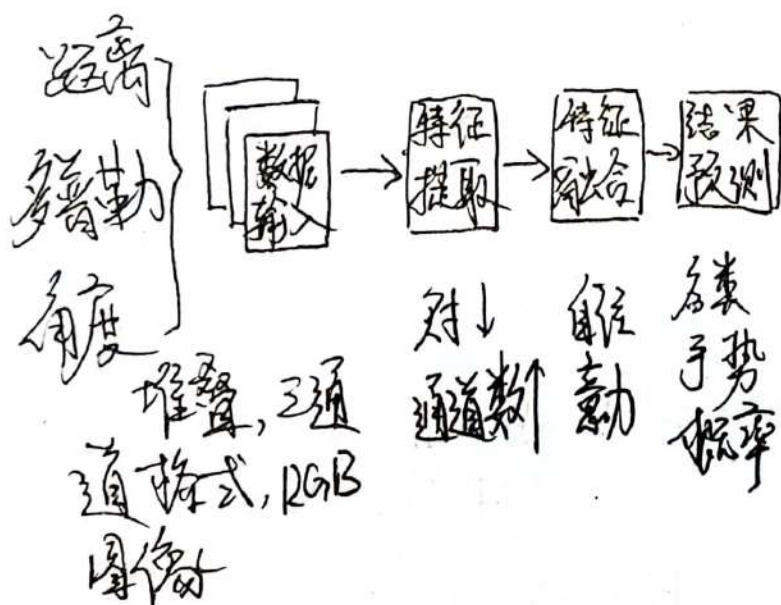 距离
多普勒
角度
数据
输入
特征
提取
特征
融合
结果
预测
堆叠,三通
道格式,RGB
图像
尺寸↓
通道数↑
自注
意力
各类
手势
概率